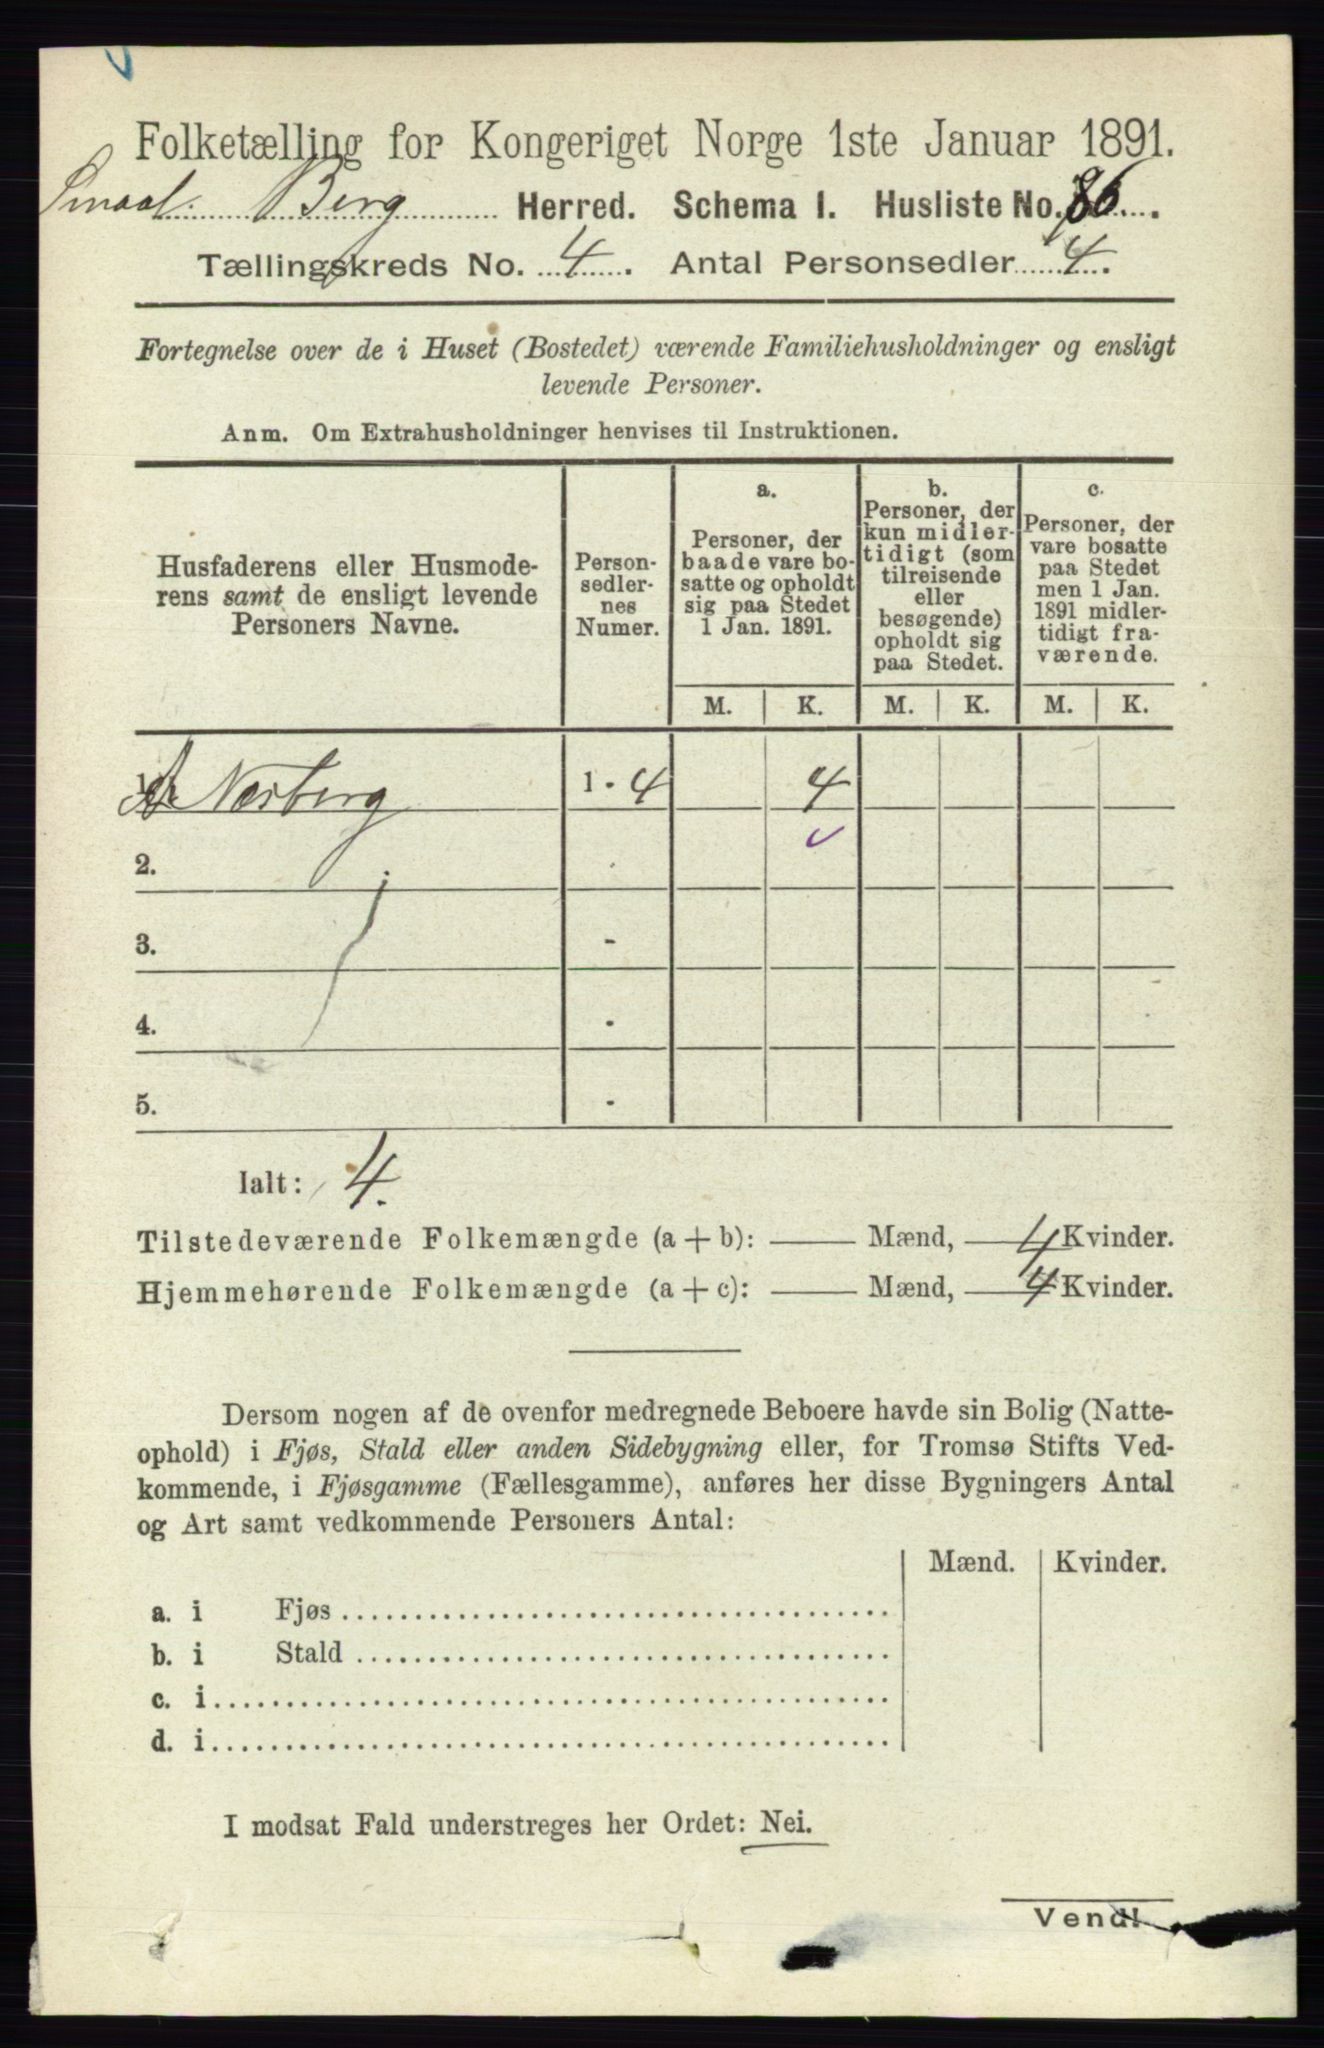 Folketælling for Kongeriget Norge 1ste Januar 1891.
Smaal. Berg Herred. Schema I. Husliste No. 86
Tællingskreds No. 4. Antal Personsedler 4.
Fortegnelse over de i Huset (Bostedet) værende Familiehusholdninger og ensligt
levende Personer.
Anm. Om Extrahusholdninger henvises til Instruktionen.
Husfaderens eller Husmode-
rens samt de ensligt levende
Personers Navne.
Person-
sedler-
nes
Numer.
a.
Personer, der
baade vare bo-
satte og opholdt
sig paa Stedet
1 Jan. 1891.
b.
Personer, der
kun midler-
tidigt (som
tilreisende
eller
besøgende)
opholdt sig
paa Stedet.
c.
Personer, der
vare bosatte
paa Stedet
men 1 Jan.
1891 midler-
tidigt fra-
værende.
M. K. M. K. M. K.
Næsberg 1 - 4 4
2.
3. -
4. -
5. -
Ialt: 4.
Tilstedeværende Folkemængde (a + b): Mænd, 4 Kvinder.
Hjemmehørende Folkemængde (a + c): Mænd, 4 Kvinder.
Dersom nogen af de ovenfor medregnede Beboere havde sin Bolig (Natte-
ophold) i Fjøs, Stald eller anden Sidebygning eller, for Tromsø Stifts Ved-
kommende, i Fjøsgamme (Fællesgamme), anføres her disse Bygningers Antal
og Art samt vedkommende Personers Antal:
Mænd. Kvinder.
a. i Fjøs
b. i Stald
c. i
d. i
I modsat Fald understreges her Ordet: Nei.
Vend!